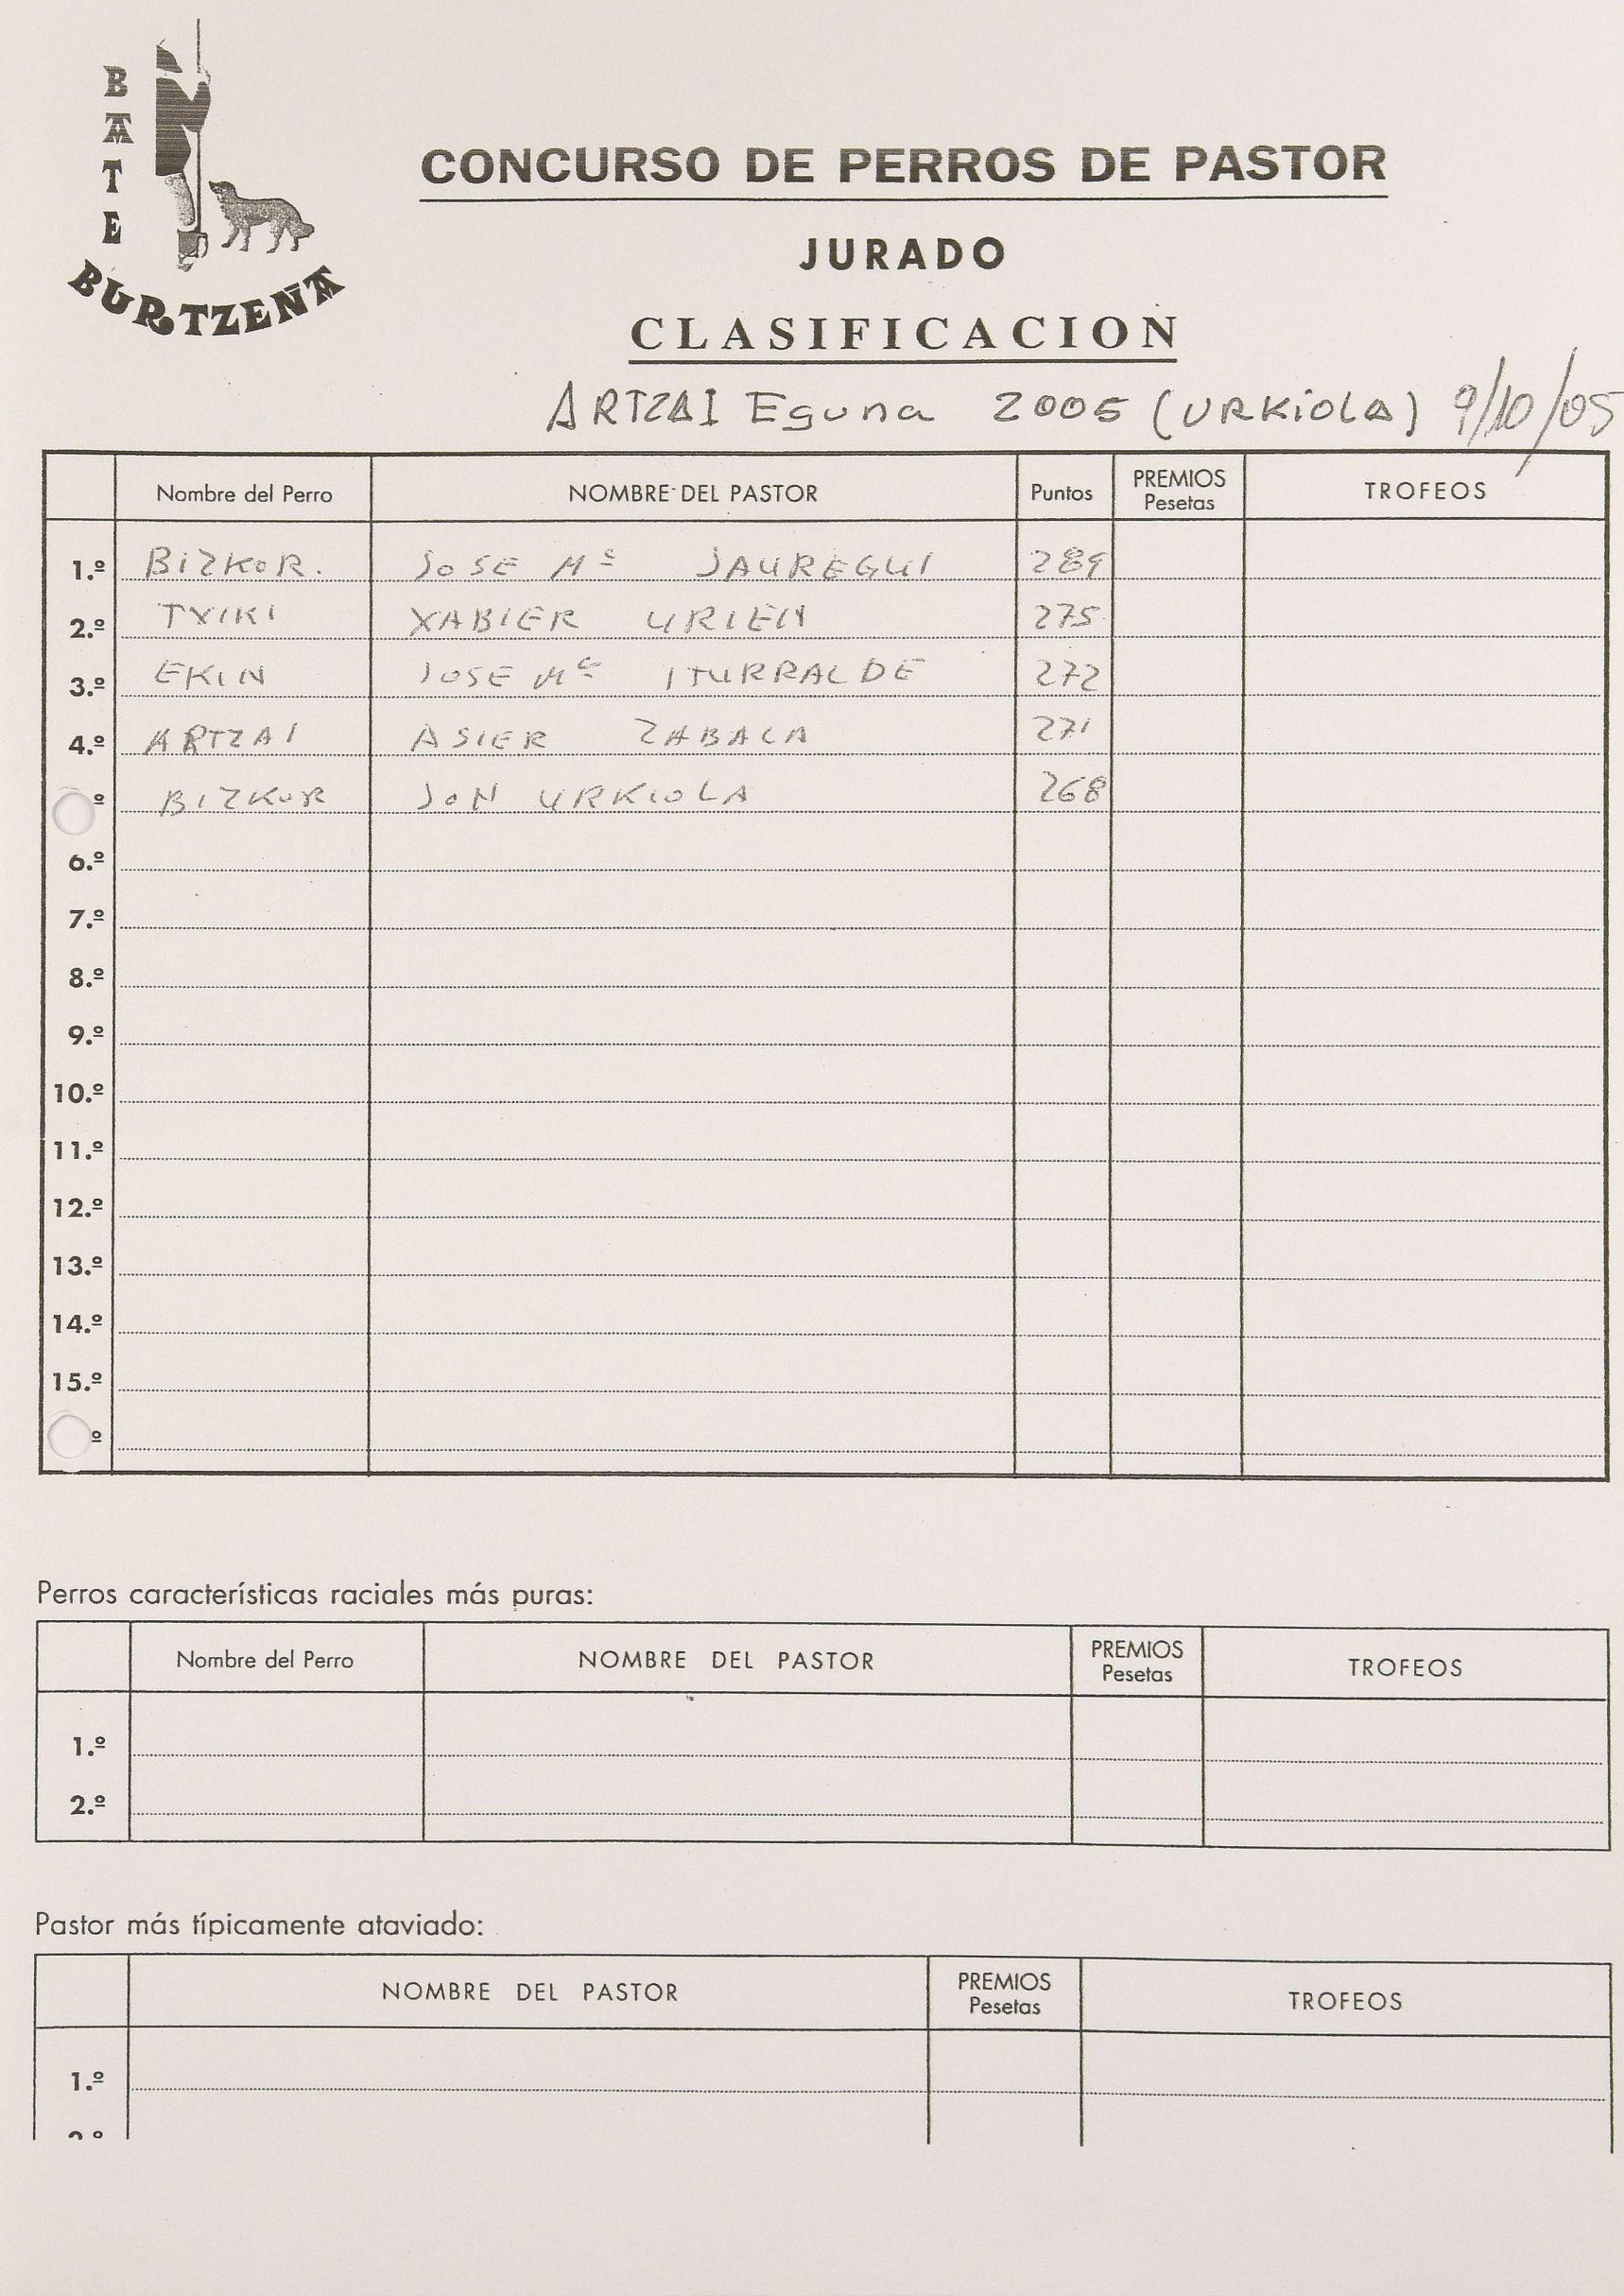 BATE
BURTZEÑA
CONCURSO DE PERROS DE PASTOR
JURADO
CLASIFICACION
ARTZAI Eguna 2005 (URKiOLA) 9/10/05
Nombre del Perro NOMBRE DEL PASTOR Puntos PREMIOS Pesetas TROFEOS
1.º BIZKOR. JOSE Mª JAUREGUI 289
2.º TXIKI XABIER URIEN 275
3.º EKIN JOSE Mª ITURRALDE 272
4.º ARTZAI ASIER ZABALA 271
º BIZKOR JON URKIOLA 268
6.º
7.º
8.º
9.º
10.º
11.º
12.º
13.º
14.º
15.º
º
Perros características raciales más puras:
Nombre del Perro NOMBRE DEL PASTOR PREMIOS Pesetas TROFEOS
1.º
2.º
Pastor más típicamente ataviado:
NOMBRE DEL PASTOR PREMIOS Pesetas TROFEOS
1.º